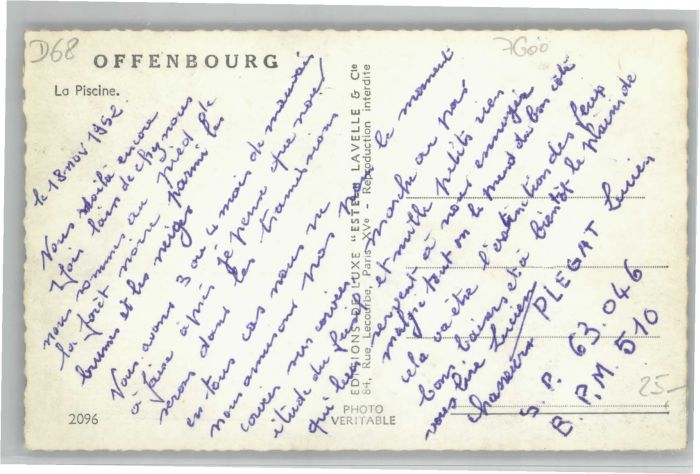 D68
7600
OFFENBOURG
La Piscine.
le 18 nov 1952
Nous voilà encore
loin de chez nous
nous sommes au pied de
la forêt noire parmi les
brumes et les neiges
Nous avons 3 ou 4 mois de mauvais
à faire après je pense que nous
serons dans les transmissions
en tous cas nous ne
nous amusons pas
corvées sur corvées
étude du
qui
le moment
marche au pas
et mille petits riens
servent à nous ennuyer
malgré tout on le prend du bon côté
cela va être l'extinction des feux
bons baisers et à bientôt le plaisir de
vous lire Lucien
chasseur PLEGAT Lucien
S.P. 63.046
B.P.M. 510
EDITIONS DE LUXE "ESTEL" LAVELLE & Cie
84, Rue Lecourbe, Paris XVe - Reproduction interdite
2096
PHOTO
VERITABLE
25-